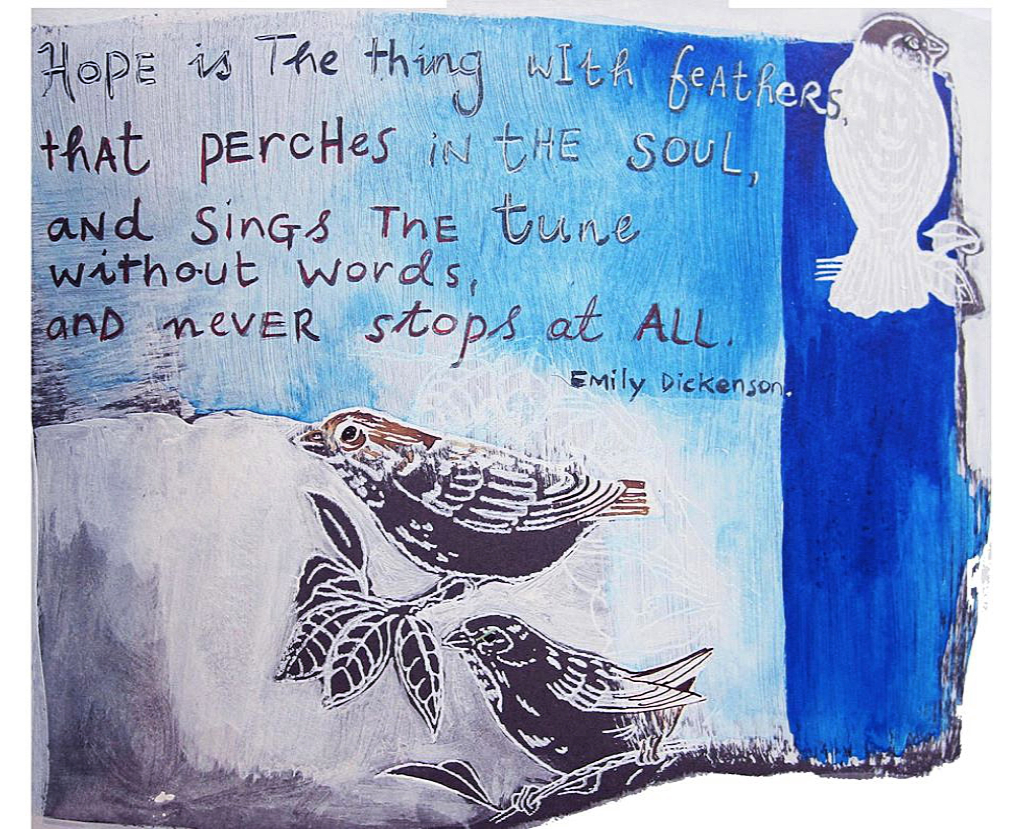 HoPE is The thing wITh feAthERs,
thAt PERcHes iN tHE SOUL,
aNd SiNGS THE tune
without words,
anD nEVER stops at ALL.
EmiLy Dickenson.